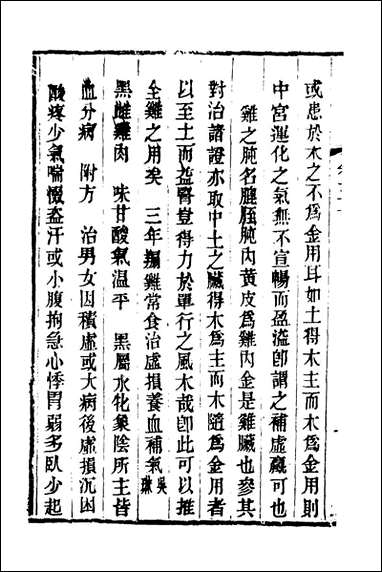 或患於木之不爲金用耳如土得木主而木爲金用則
中宮運化之氣無不宣暢而盈溢卽謂之補虛羸可也
雞之肫名膍胵肫內黃皮爲雞內金是雞臟也參其
對治諸證亦取中土之臟得木爲主而木隨爲金用者
以至土而益腎豈得力於單行之風木哉卽此可以推
全雞之用矣　三年騸雞常食治虛損養血補氣吳瑞
黑雌雞肉　味甘酸氣温平　黑屬水化象陰所主皆
血分病　附方　治男女因積虛或大病後虛損沉困
酸疼少氣喘惙盗汗或小腹拘急心悸胃弱多臥少起